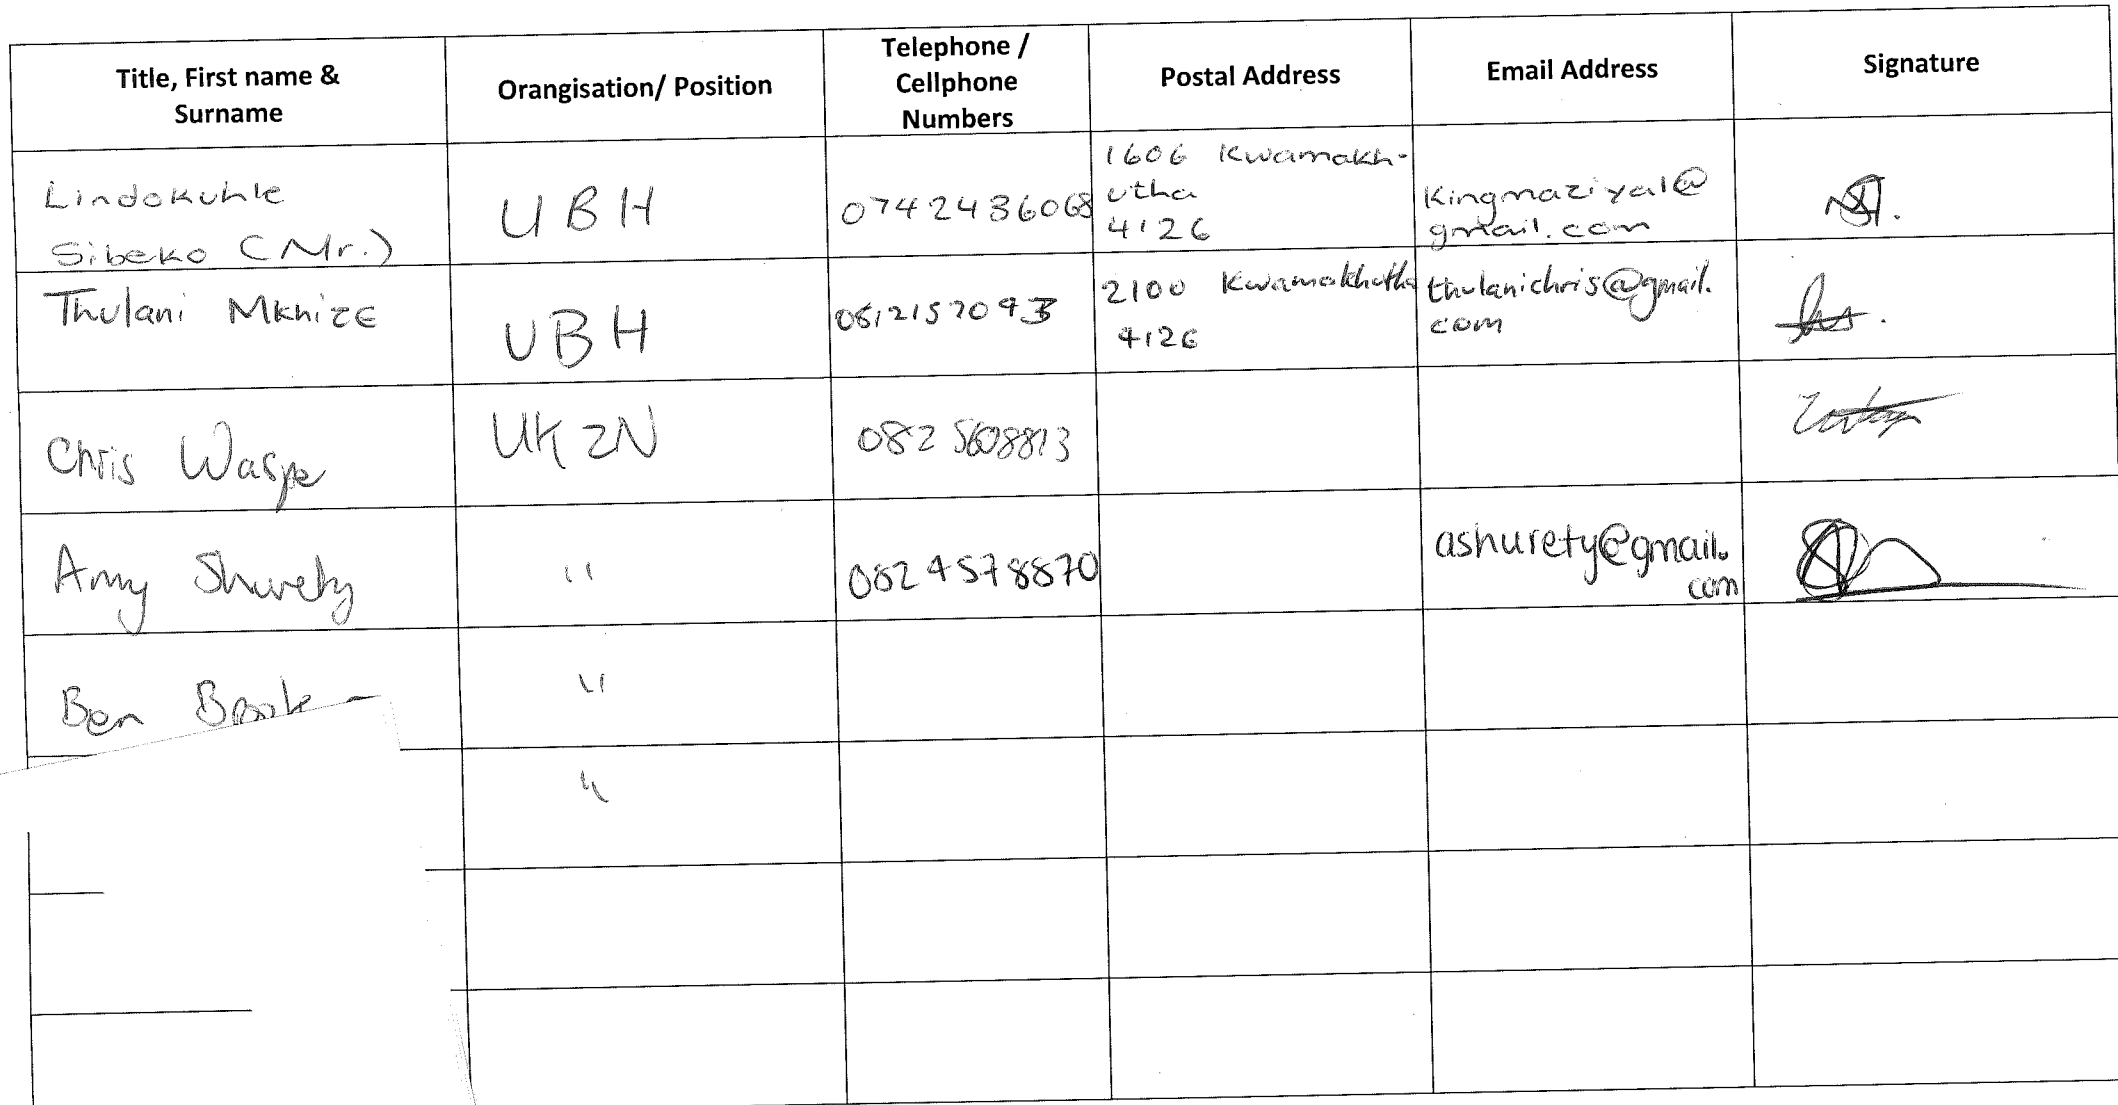 Title, First name &
Surname
Orangisation/ Position
Telephone /
Cellphone
Numbers
Postal Address
Email Address
Signature
Lindokuhle
Sibeko (Mr.)
UBH
0742436068
1606 Kwamakh-
utha
4126
Kingmaziyal@
gmail.com
Thulani Mkhize
UBH
2100 Kwamakhutha
4126
thulanichris@gmail.
com
Chris Waspe
UKZN
082 5608813
Amy Shurety
"
082 4578870
ashurety@gmail.
com
Ben
"
"